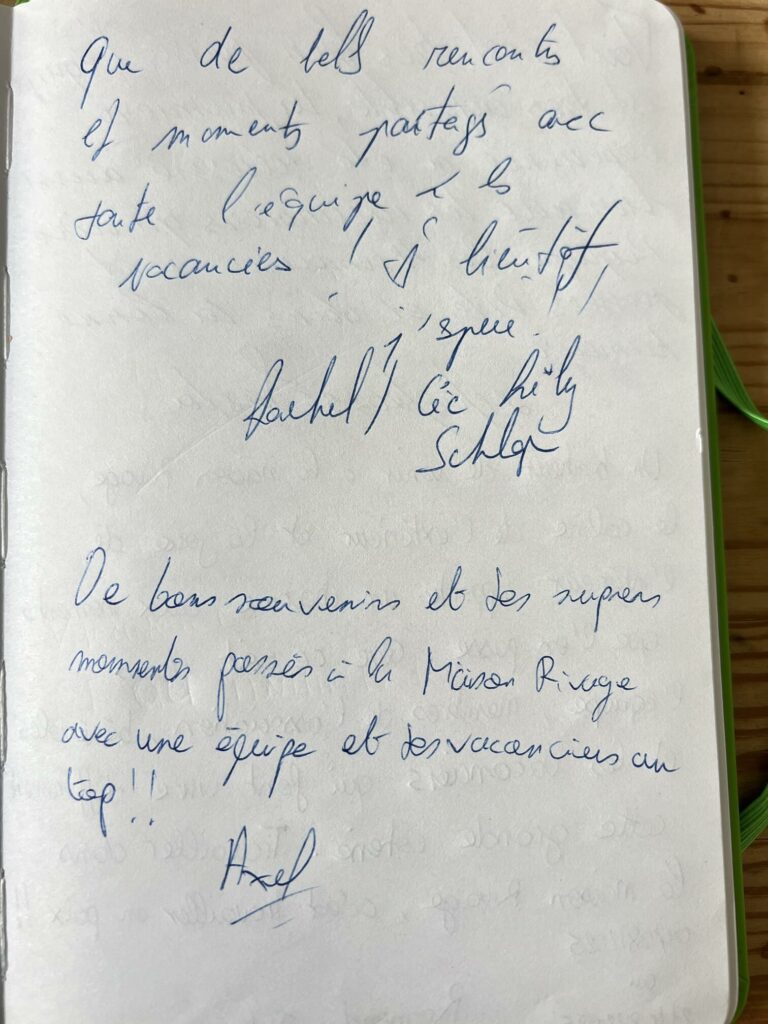 Que de bells rencontres
et moments partagés avec
toute l'équipe & les
vacanciers ! A bientôt,
j'espère !
Rachel /
De bons souvenirs et des supers
moments passés à la Maison Rivage
avec une équipe et des vacanciers au
top !!
Axel